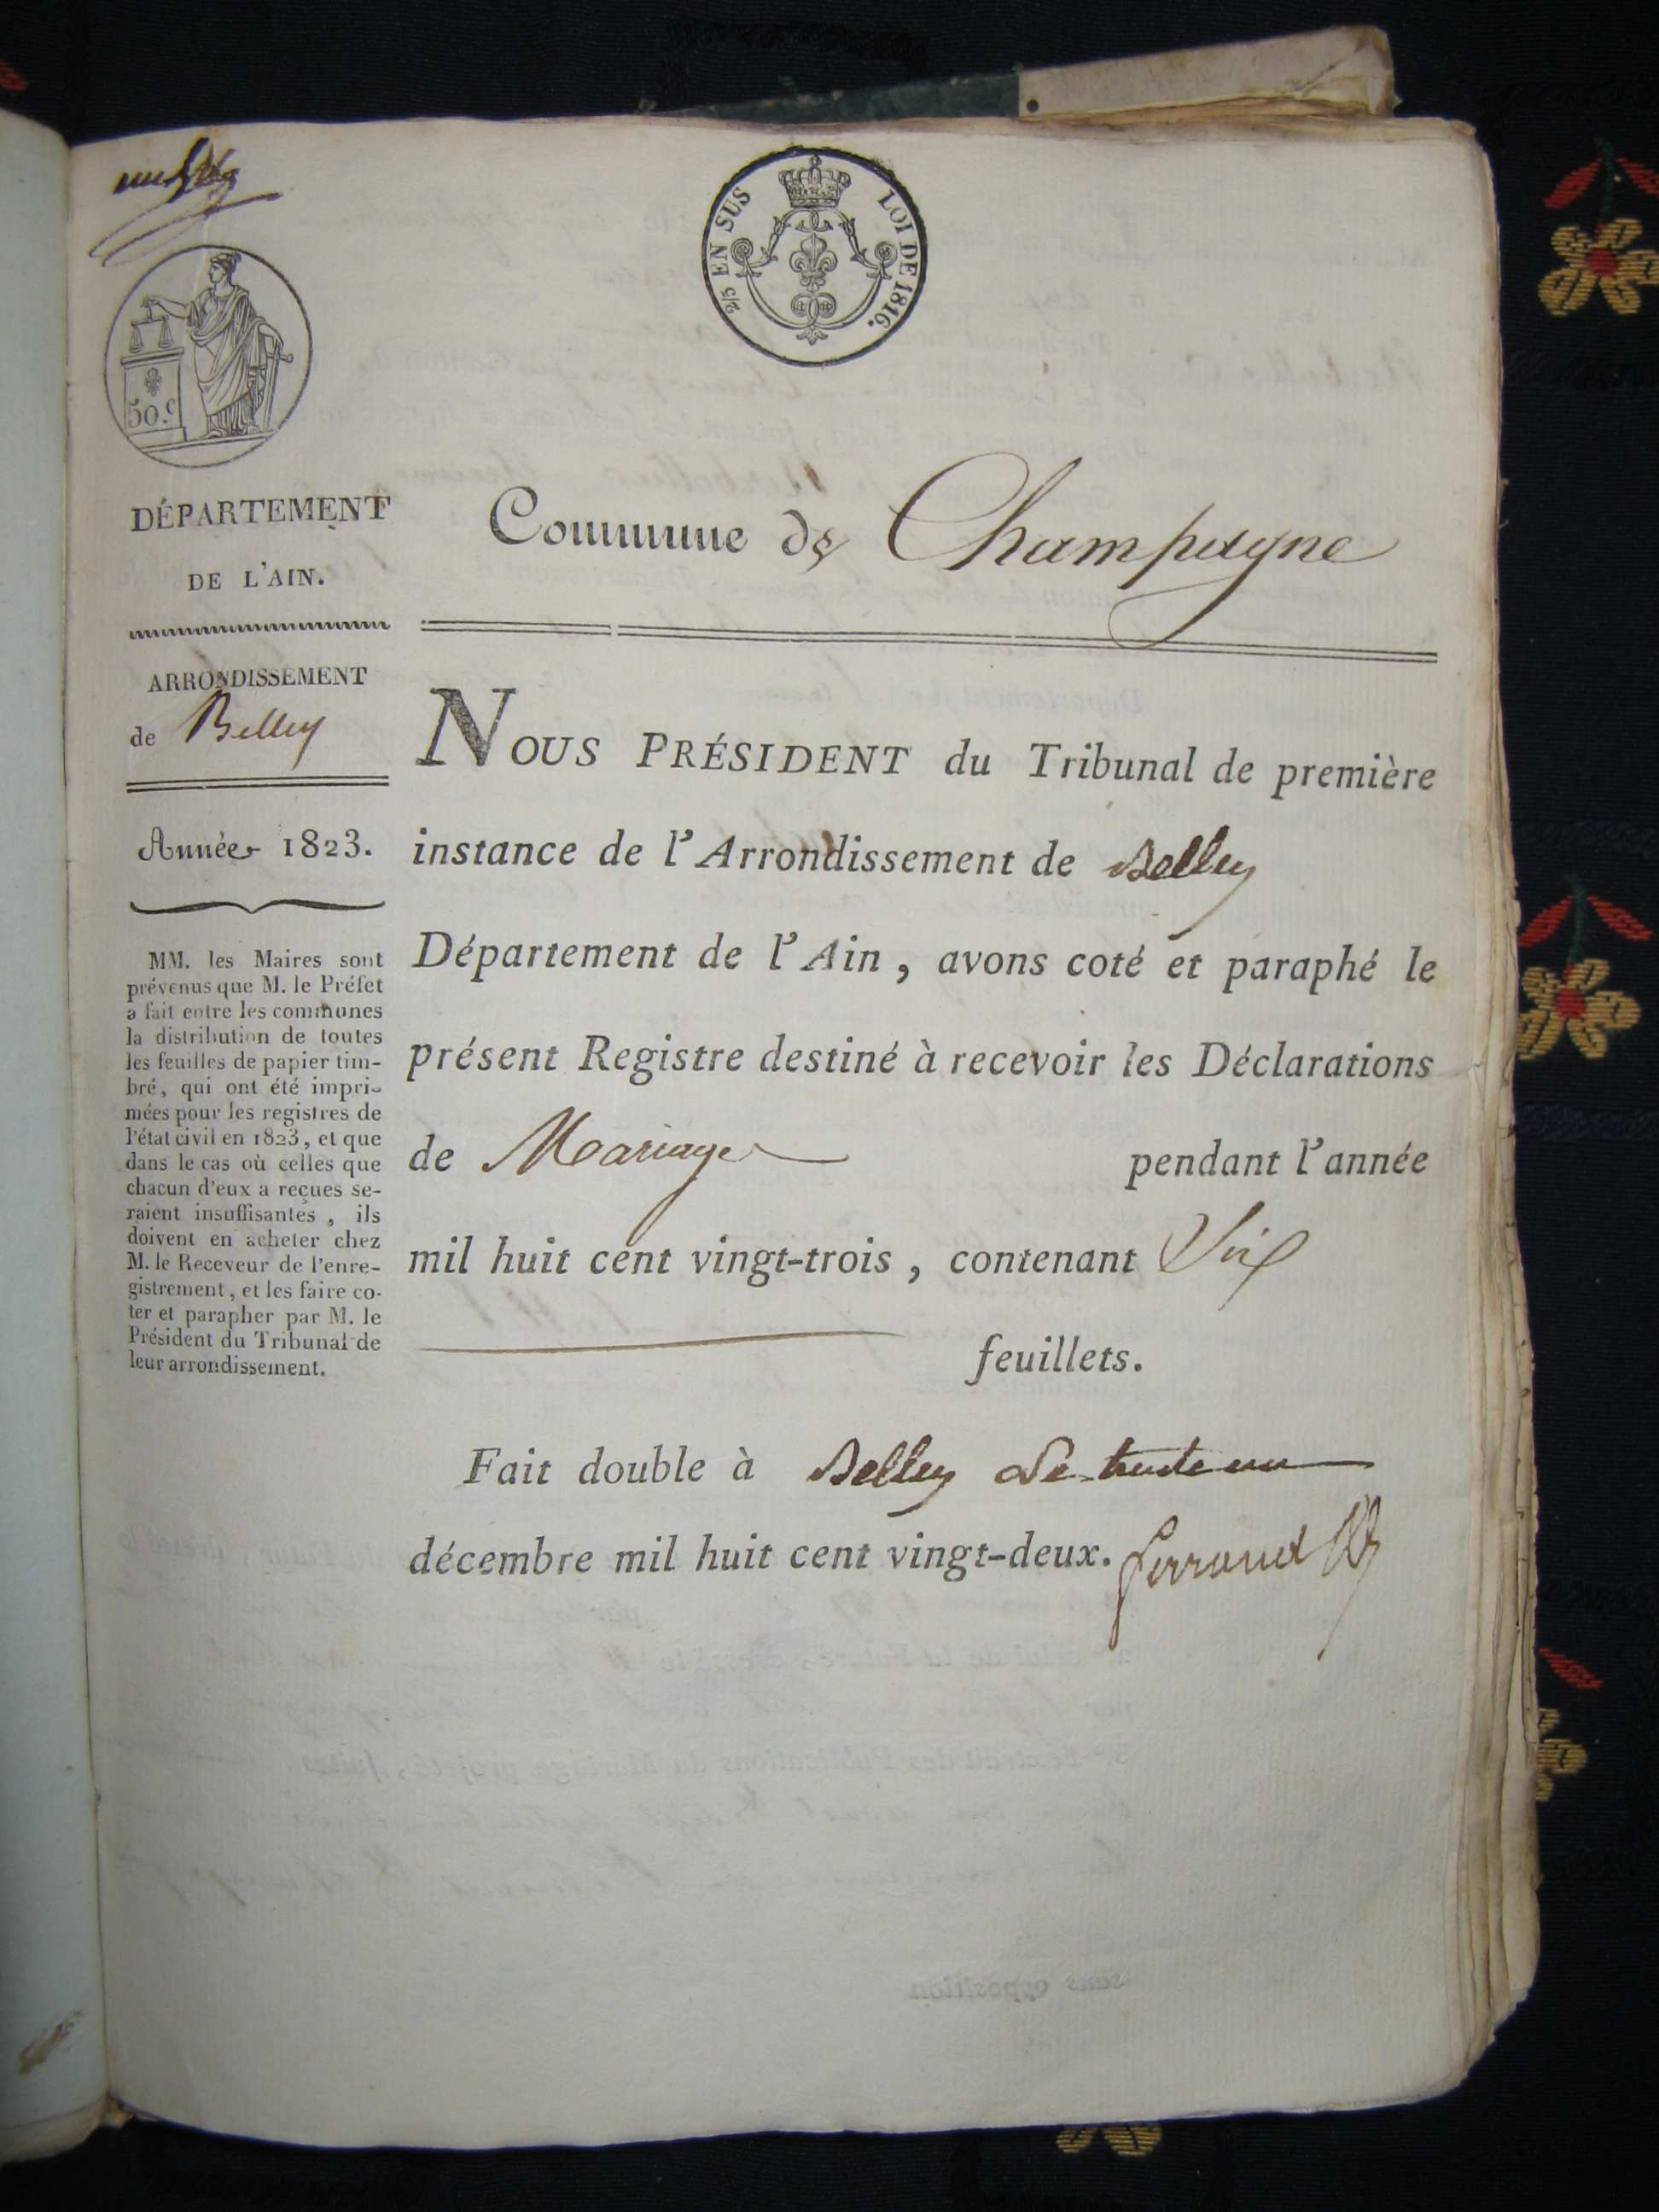 2/5 EN SUS LOI DE 1816.
50.c
DÉPARTEMENT
DE L'AIN.
ARRONDISSEMENT
de Belley
Année 1823.
MM. les Maires sont
prévenus que M. le Préfet
a fait entre les communes
la distribution de toutes
les feuilles de papier tim-
bré, qui ont été impri-
mées pour les registres de
l'état civil en 1823, et que
dans le cas où celles que
chacun d'eux a reçues se-
raient insuffisantes, ils
doivent en acheter chez
M. le Receveur de l'enre-
gistrement, et les faire co-
ter et parapher par M. le
Président du Tribunal de
leur arrondissement.
Commune de Champagne
NOUS PRÉSIDENT du Tribunal de première
instance de l'Arrondissement de Belley
Département de l'Ain, avons coté et paraphé le
présent Registre destiné à recevoir les Déclarations
de Mariage pendant l'année
mil huit cent vingt-trois, contenant Six
feuillets.
Fait double à Belley Le trente un
décembre mil huit cent vingt-deux. ferrand